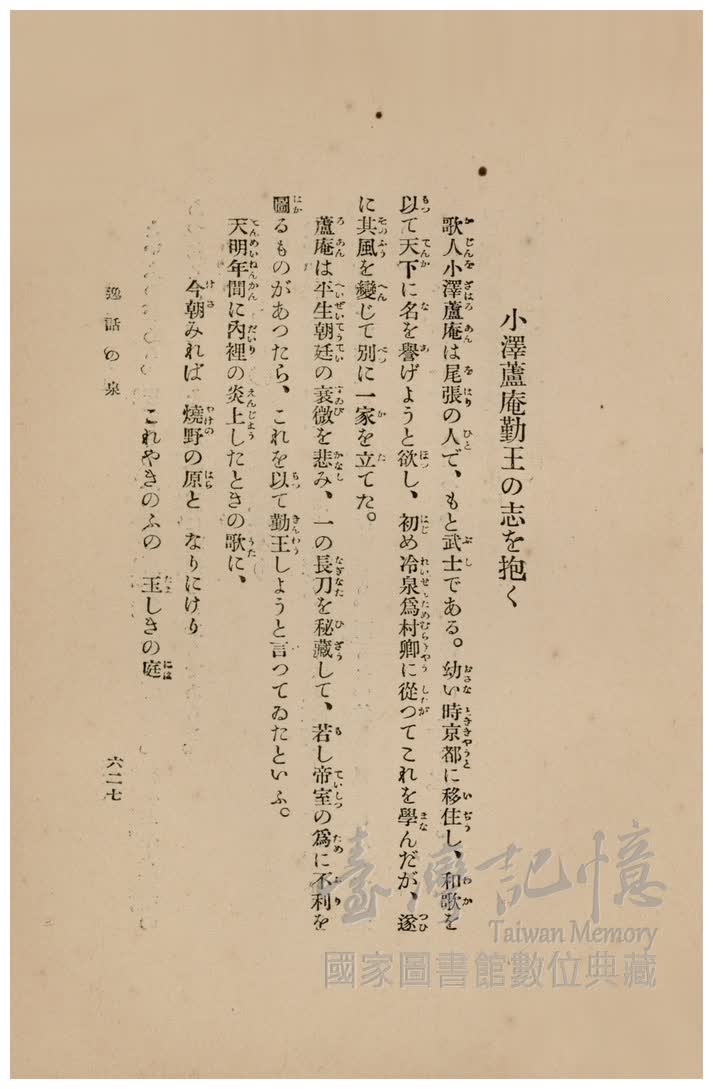 小澤蘆庵勤王の志を抱く
歌人小澤蘆庵は尾張の人で、もと武士である。幼い時京都に移住し、和歌を
以て天下に名を譽げようと欲し、初め冷泉爲村卿に從つてこれを學んだが、遂
に其風を變じて別に一家を立てた。
蘆庵は平生朝廷の衰微を悲み、一の長刀を秘藏して、若し帝室の爲に不利を
圖るものがあつたら、これを以て勤王しようと言つてゐたといふ。
天明年間に內裡の炎上したときの歌に、
今朝みれば 燒野の原と なりにけり
これやきのふの 玉しきの庭
逸話の泉
六二七
臺灣記憶
Taiwan Memory
國家圖書館數位典藏